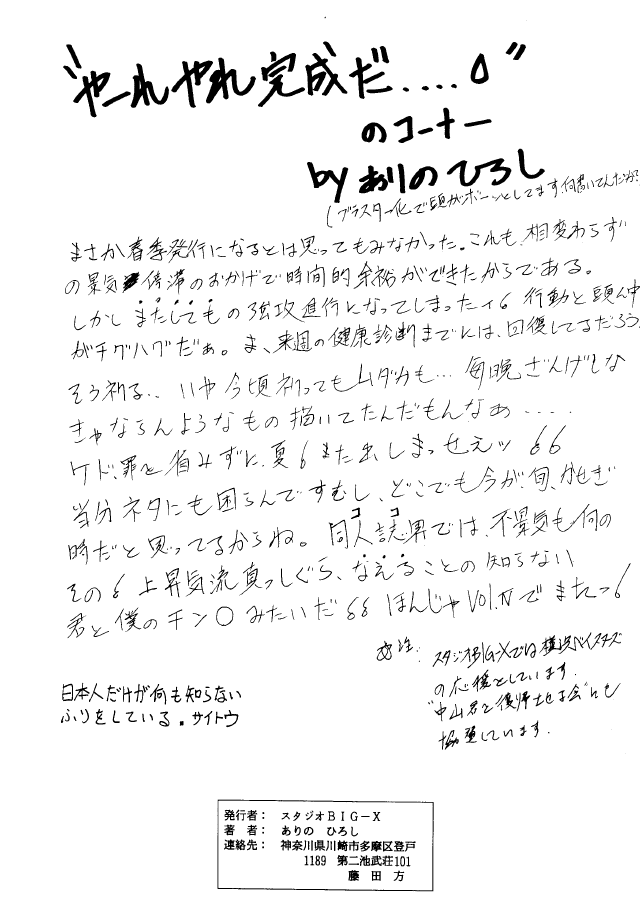 “やーれやれ完成だ....０”
のコーナー
by ありのひろし
(ブラスター化で頭がボーッとしてます、何書いてんだか?
まさか春季発行になるとは思ってもみなかった。これも、相変わらず
の景気停滞のおかげで時間的余裕ができたからである。
しかしまたしてもの強攻進行になってしまったィ6 行動と頭ん中
がチグハグだぁ。ま、来週の健康診断までには、回復してるだろう
そう祈る.. いや今頃祈ってもムダかも… 毎晩ざんげしな
きゃならんようなもの描いてたんだもんなぁ.....
ケド、罪を省みずに、夏6また出しまっせぇッ66
当分ネタにも困らんですむし、どこでも今が旬、かせぎ
時だと思ってるからね。同人誌界では、不景気も何の
ココ
その6上昇気流真っしぐら、なえることの知らない
君と僕のチン〇みたいだ66 ほんじゃVol.Ⅳでまたっ6
スタジオBIG-Xでは横浜ベイスターズ
の応援をしています。
“中山君を復帰させる会”にも
協賛しています.
日本人だけが何も知らない
ふりをしている。サイトウ
発行者： スタジオBIG-X
著 者： ありの ひろし
連絡先： 神奈川県川崎市多摩区登戸
1189 第二池武荘101
藤 田 方